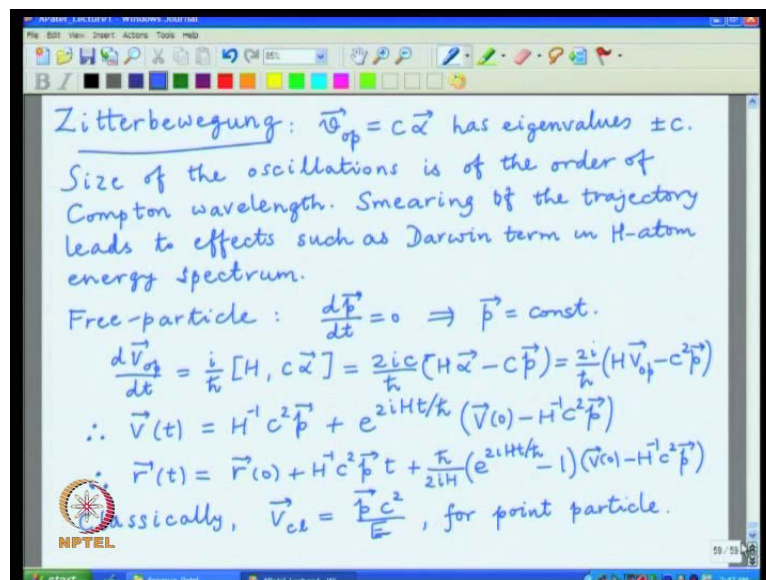 APatel_Lecture1 - Windows Journal
File Edit View Insert Actions Tools Help
85%
B I
Zitterbewegung: \vec{v}_{op} = c\vec{α} has eigenvalues ±c.
Size of the oscillations is of the order of
Compton wavelength. Smearing of the trajectory
leads to effects such as Darwin term in H-atom
energy spectrum.
Free-particle: d\vec{p}/dt = 0 ⇒ \vec{p} = const.
d\vec{v}_{op}/dt = i/ħ [H, c\vec{α}] = 2ic/ħ (H\vec{α} - c\vec{p}) = 2i/ħ (H\vec{v}_{op} - c²\vec{p})
∴ \vec{v}(t) = H⁻¹c²\vec{p} + e^{2iHt/ħ} (\vec{v}(0) - H⁻¹c²\vec{p})
∴ \vec{r}(t) = \vec{r}(0) + H⁻¹c²\vec{p}t + ħ/2iH (e^{2iHt/ħ} - 1)(\vec{v}(0) - H⁻¹c²\vec{p})
Classically, \vec{v}_{cl} = \vec{p}c²/E, for point particle.
NPTEL
59 / 59
start